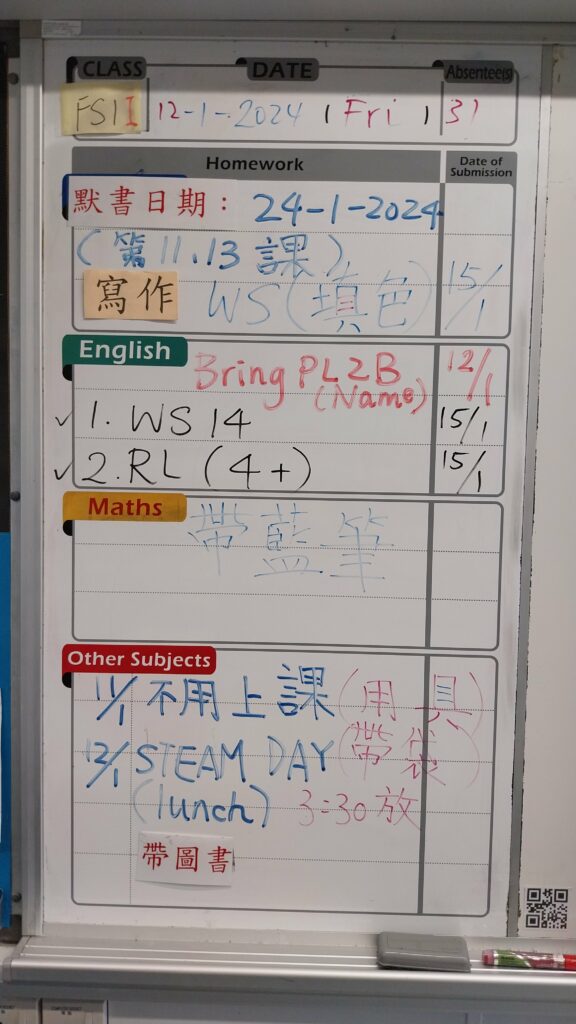 CLASS DATE Absentee(s)
12-1-2024 Fri 31
Homework Date of Submission
默書日期： 24-1-2024
(第11.13課)
寫作 WS(填色) 15/1
English
Bring PL2B 12/1
(Name)
✓ 1. WS 14 15/1
✓ 2. RL (4+) 15/1
Maths
帶藍筆
Other Subjects
11/1 不用上課 (用具)
12/1 STEAM DAY (帶袋)
(lunch) 3:30放
帶圖書